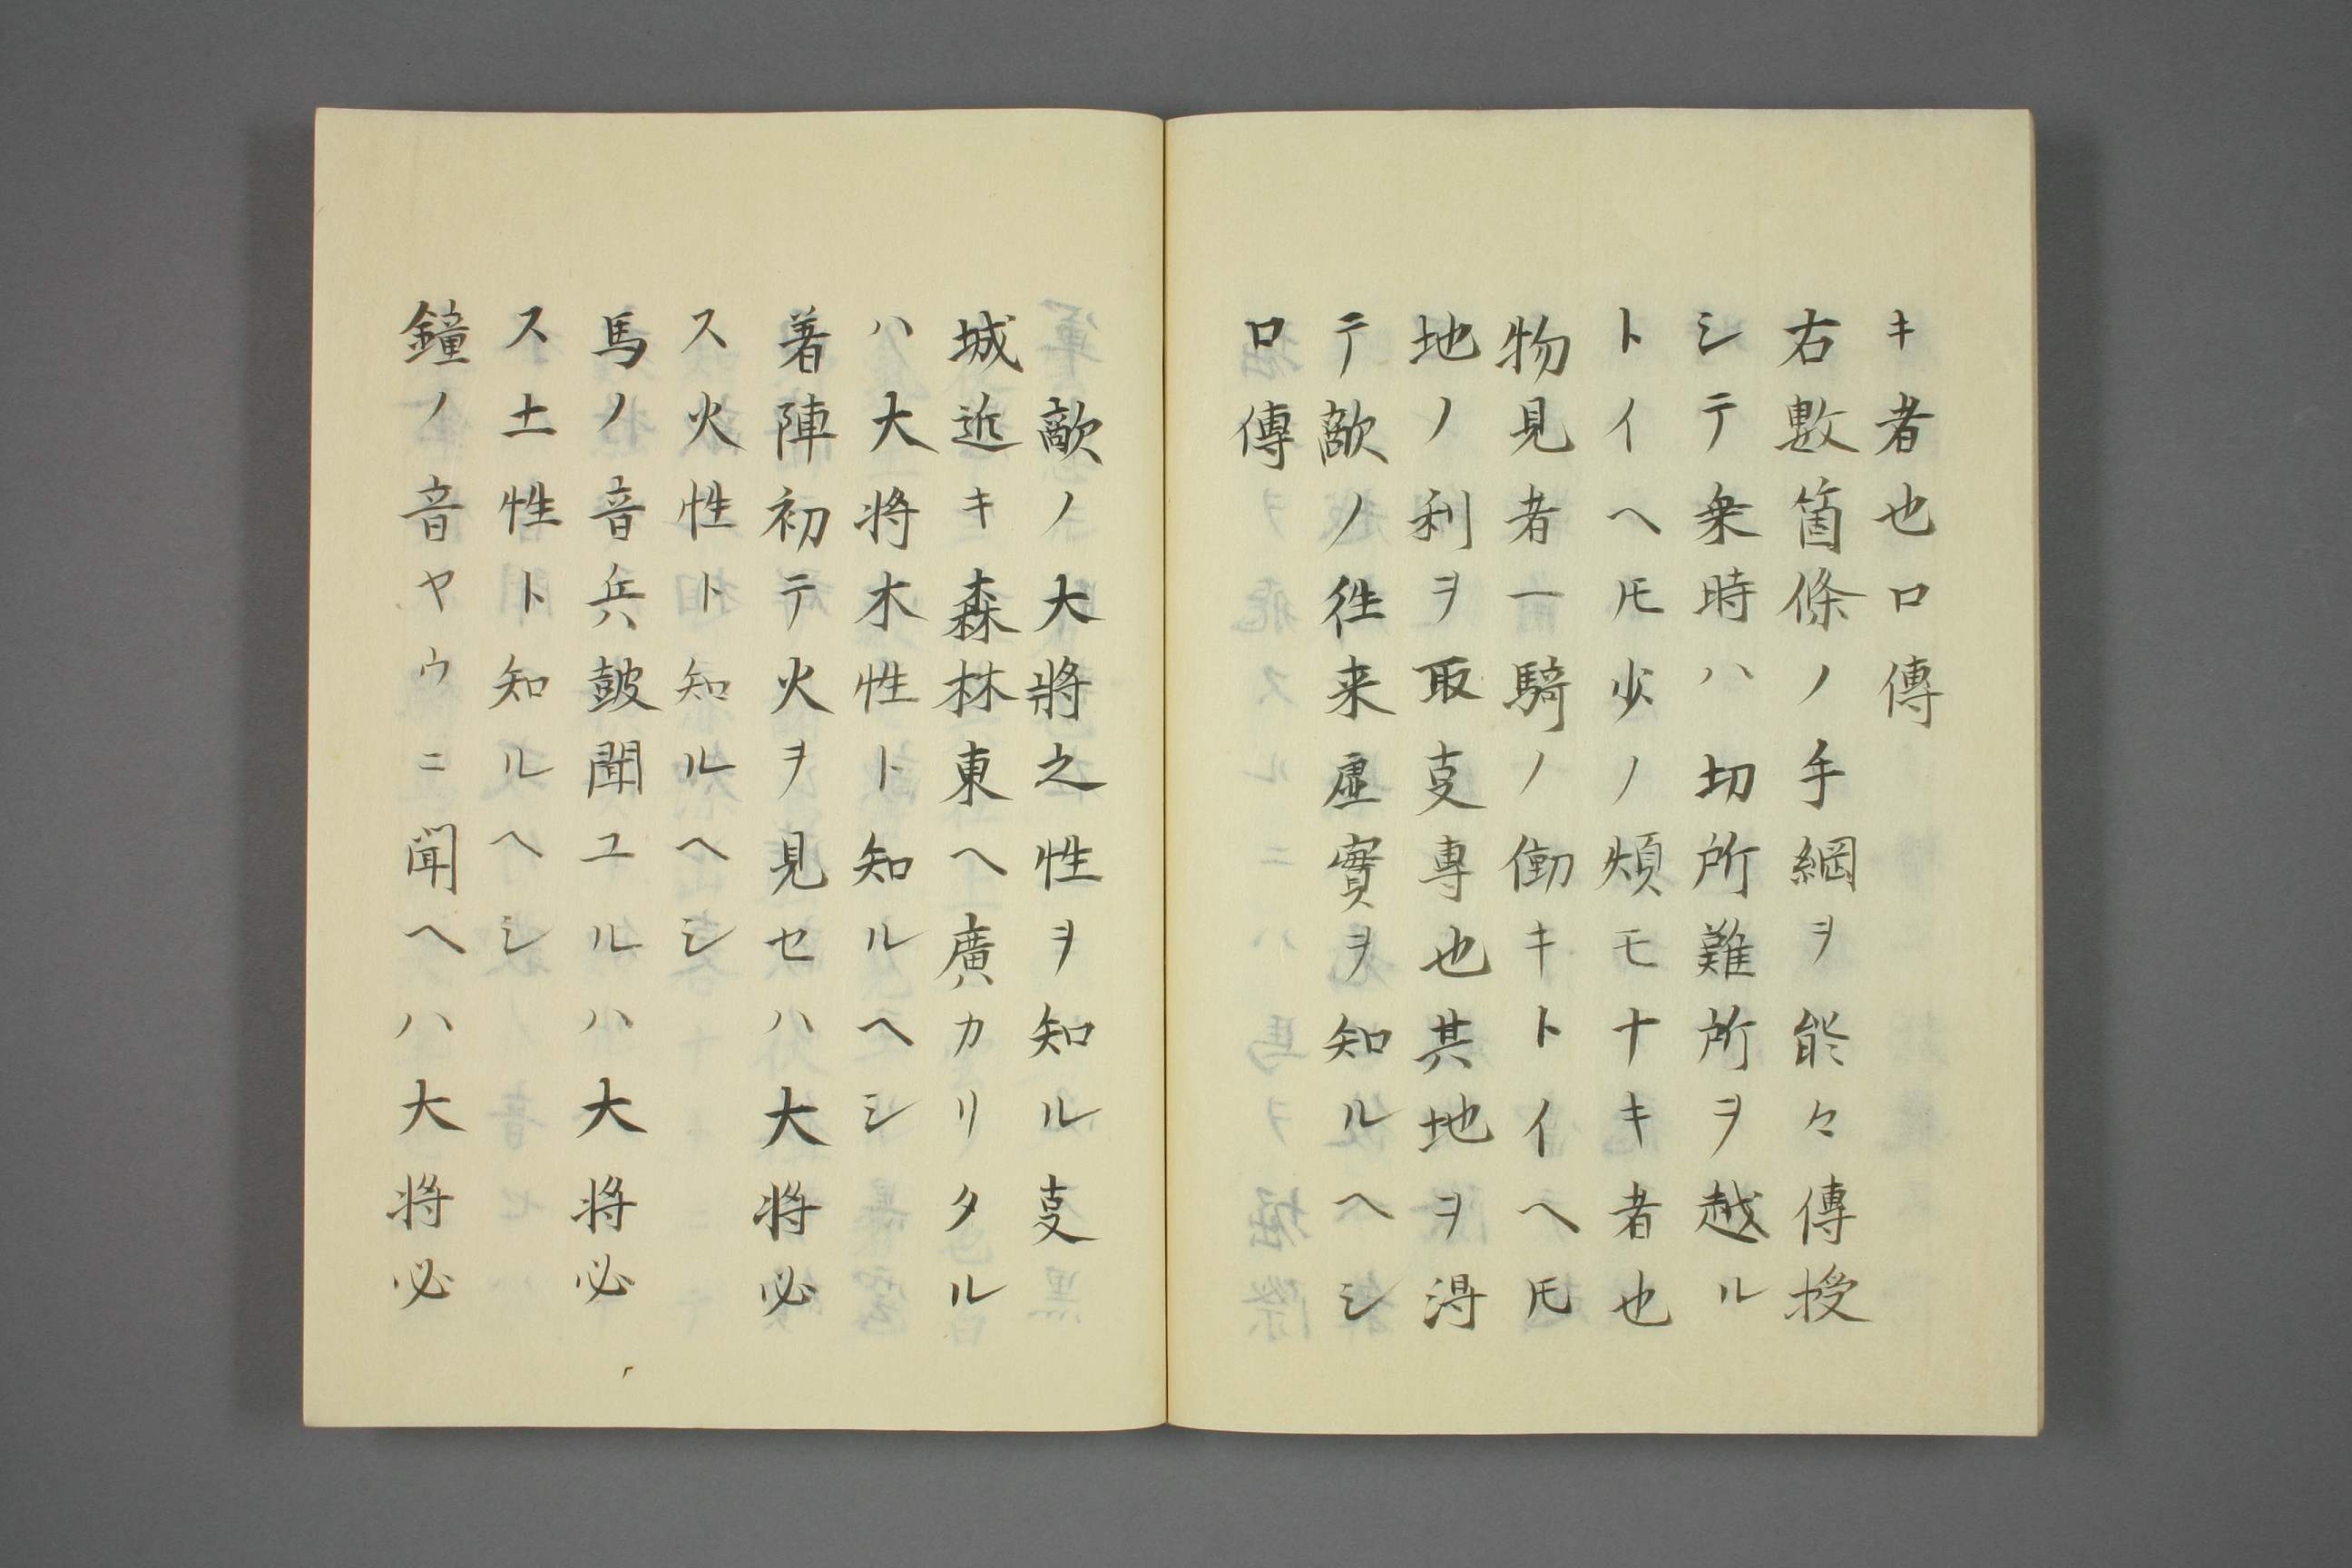 キ者也口傳
右數箇條ノ手綱ヲ能々傳授
シテ乗時ハ切所難所ヲ越ル
トイヘ𪜈少ノ煩モナキ者也
物見者一騎ノ働キトイヘ𪜈
地ノ利ヲ取叓專也其地ヲ淂
テ敵ノ徃来虚實ヲ知ルヘシ
口傳
敵ノ大將之性ヲ知ル叓
城近キ森林東ヘ廣カリタル
ハ大将木性ト知ルヘシ
著陣初テ火ヲ見セハ大将必
ス火性ト知ルヘシ
馬ノ音兵鼓聞ユルハ大将必
ス土性ト知ルヘシ
鐘ノ音ヤウニ聞ヘハ大将必